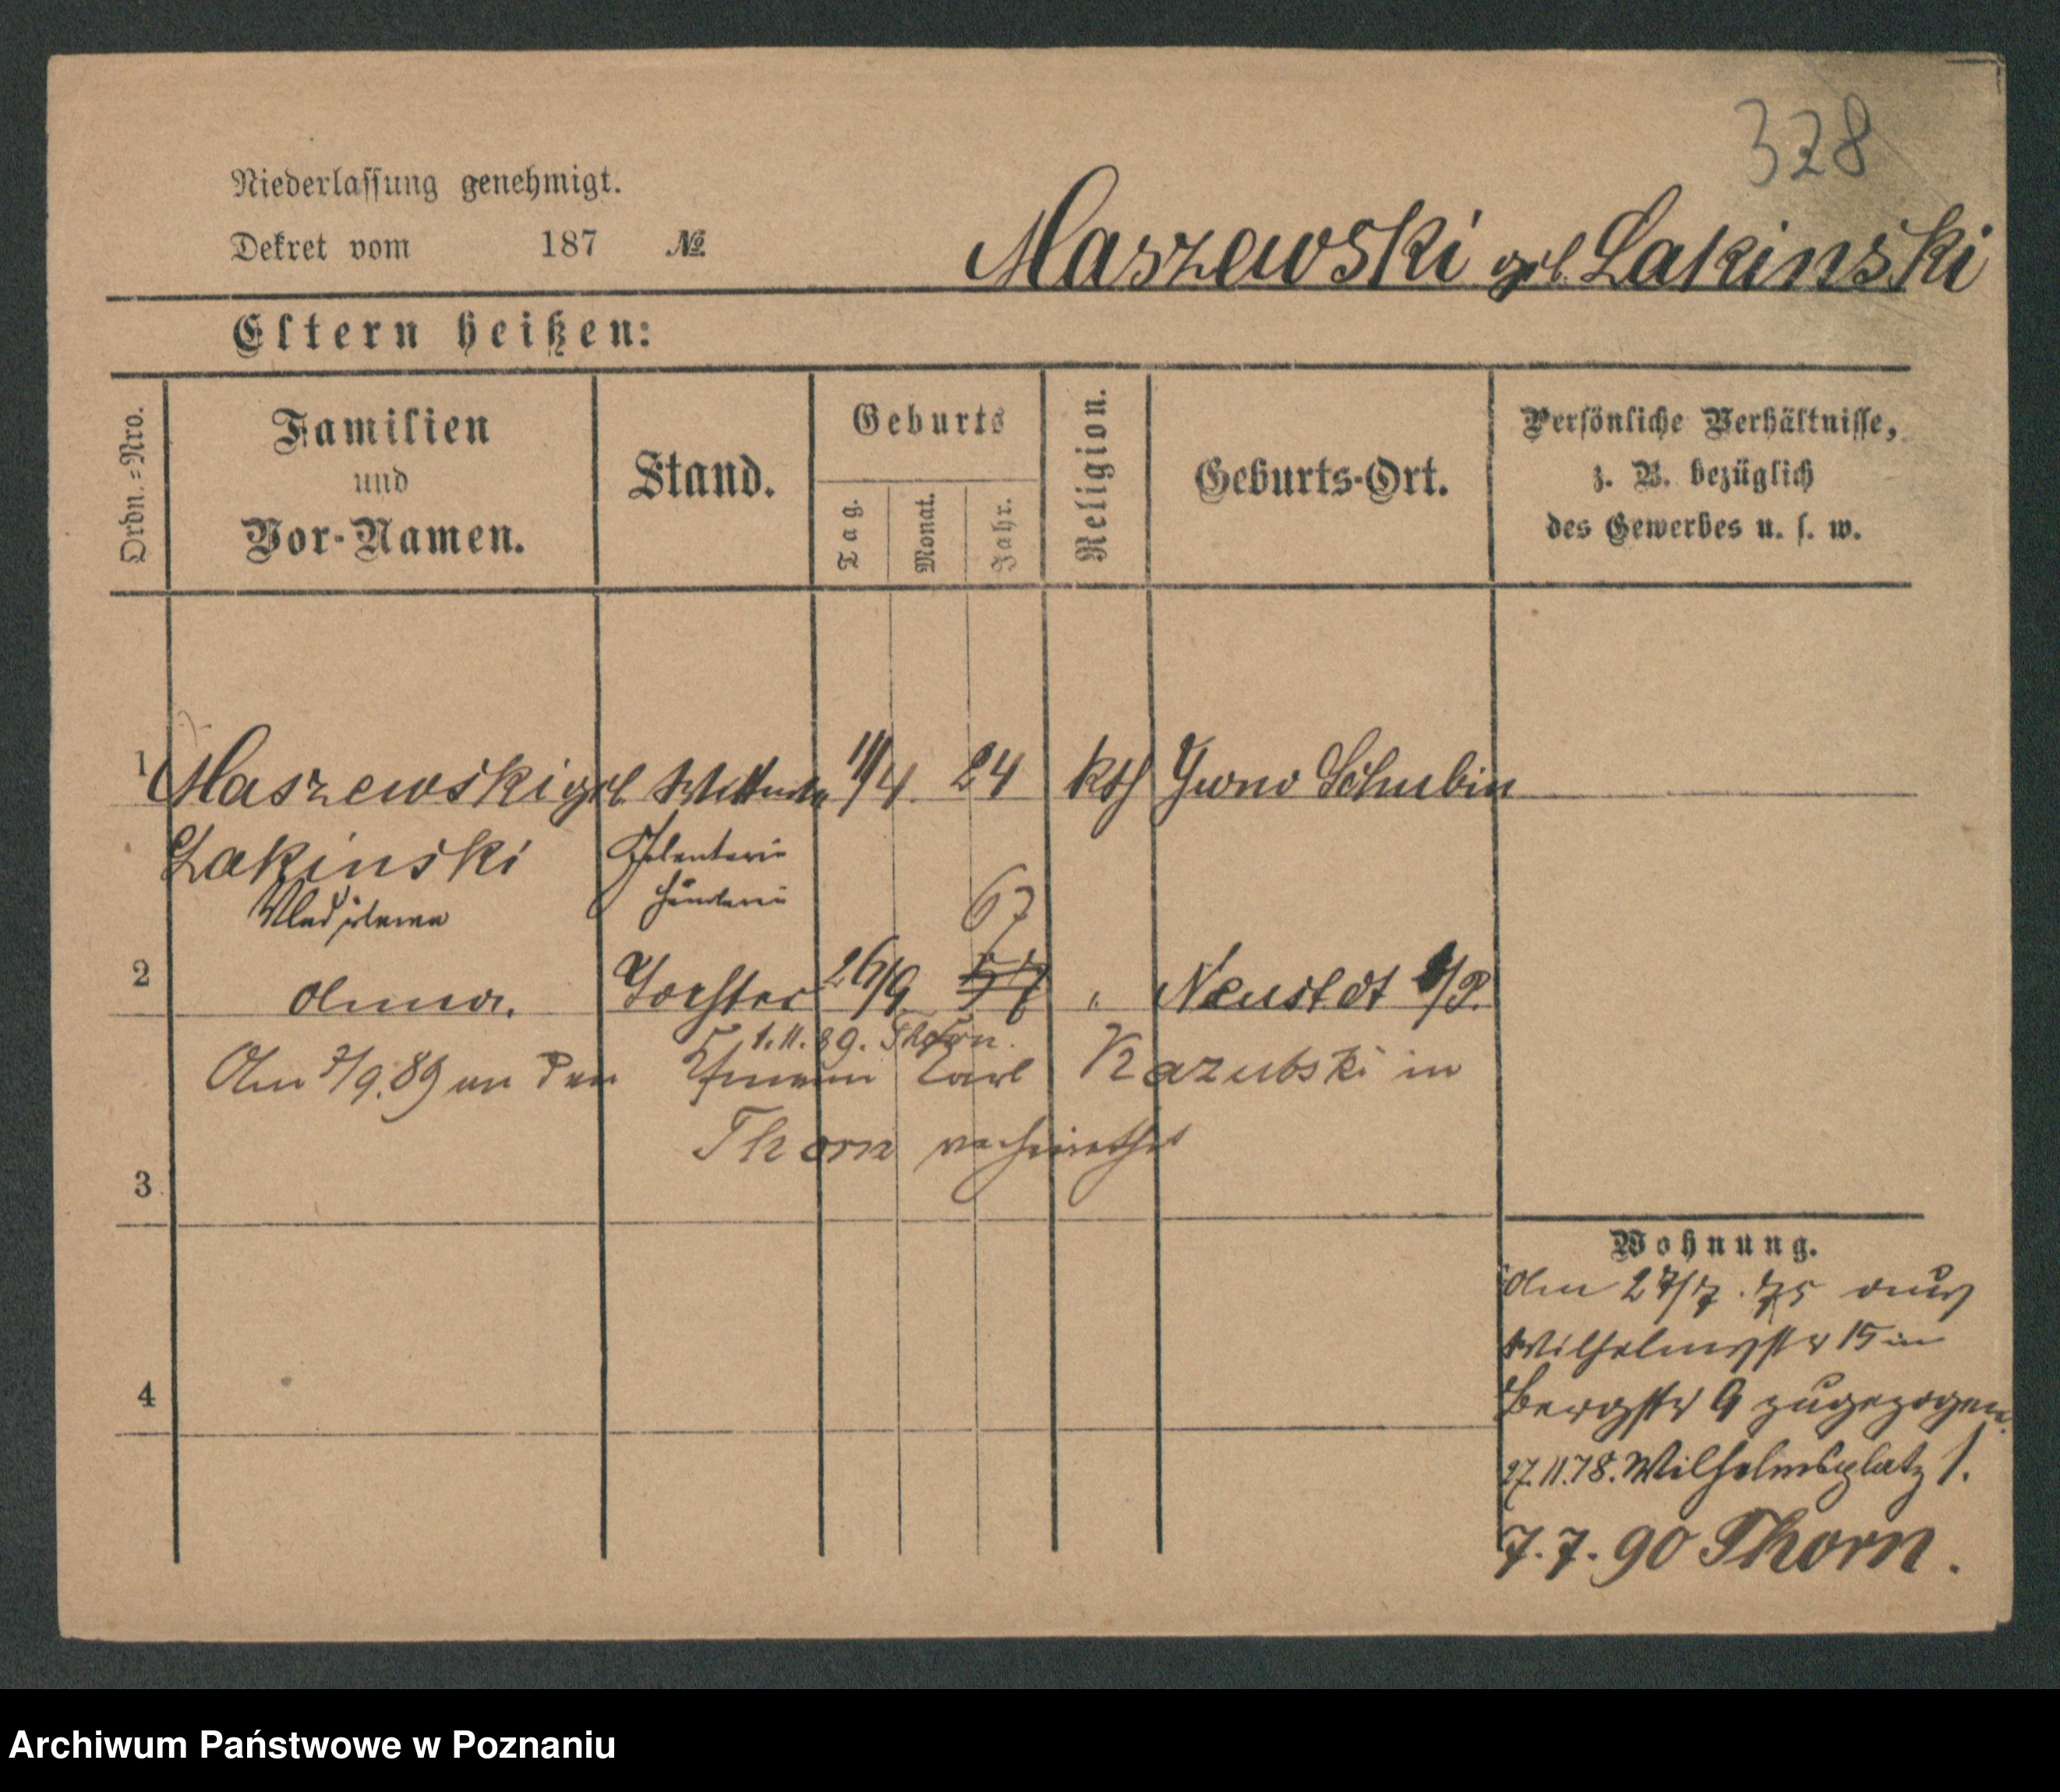 328
Niederlassung genehmigt.
Dekret vom 187 №
Maszewski geb. Lakinski
Eltern heißen:
Ordn.=Nro.
Familien
und
Vor-Namen.
Stand.
Geburts
Tag.
Monat.
Jahr.
Religion.
Geburts-Ort.
Persönliche Verhältnisse,
z. B. bezüglich
des Gewerbes u. s. w.
1 Maszewski geb. Wittwe 11/4. 24 kth Gwno Schubin
Lakinski
händlerin
67
2 Anna. Tochter 26/9 57 " Neustdt b/P.
1.11.89. Thorn.
Am 7/9.89 an den Carl Kazubski in
Thorn verheirathet
3
4
Wohnung.
Am 27/7.75 aus
Wilhelmsstr 15 in
Bergstr 9 zugezogen.
27.11.78. Wilhelmsplatz 1.
7.7.90 Thorn.
Archiwum Państwowe w Poznaniu